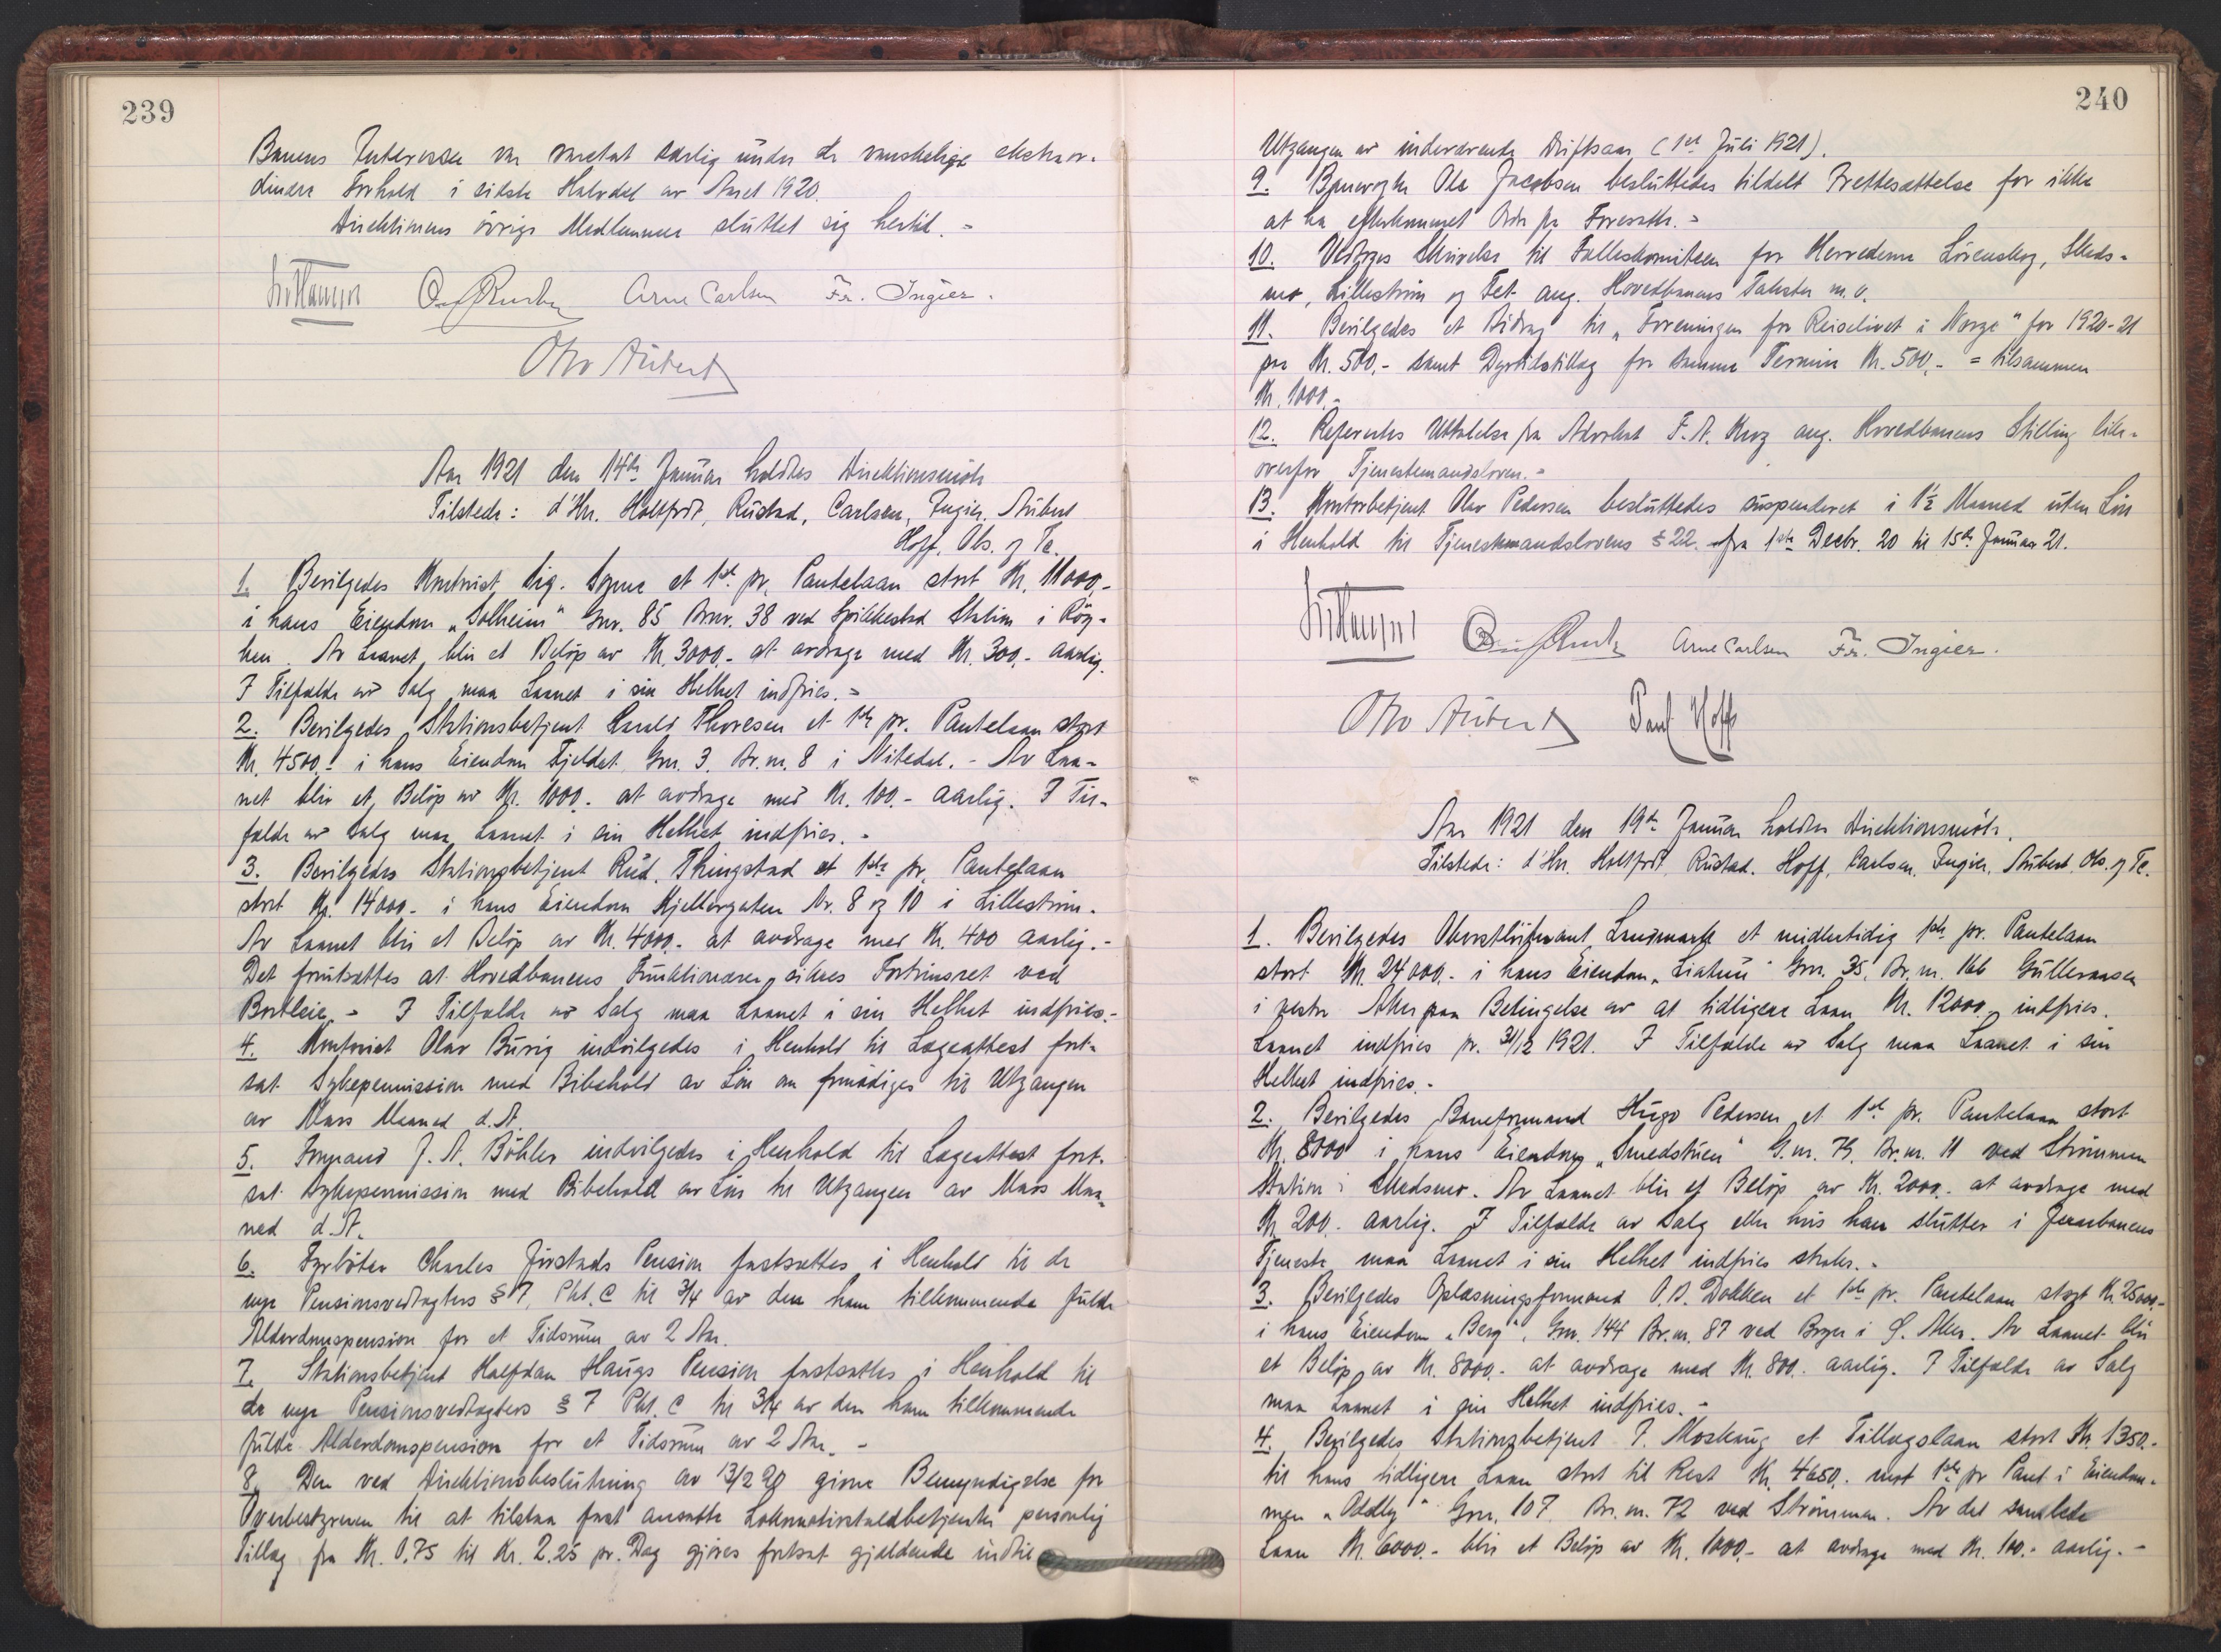 239
Banens Interesser var varetat særlig under de vanskelige ekstraor-
dinære Forhold i sidste Halvdel av Aaret 1920.
Direktionens övrige Medlemmer sluttet sig hertil. -
Arne Carlsen Fr. Ingier.
Otto Aubert
Aar 1921 den 14de Januar holdtes Direktionsmöte
Tilstede: d'Hrr. Holtfodt, Rustad, Carlsen, Ingier, Aubert
Hoff, Obs. og Te.
1. Bevilgedes Kontorist Sig. Sogne et 1st pr. Pantelaan stort Kr. 11000,-
i hans Eiendom „Solheim" Gnr. 85 Brnr. 38 ved Spikkestad Station i Röy-
ken. Av Laanet blir et Belöp av Kr. 3000.- at avdrage med Kr. 300.- aarlig.
I Tilfælde av Salg maa Laanet i sin Helhet indfries. -
2. Bevilgedes Stationsbetjent Harald Thoresen et 1ste pr. Pantelaan stort
Kr. 4500.- i hans Eiendom Fjeldet Gnr. 3. Br.nr. 8 i Nitedal. - Av Laa-
net blir et Belöp av Kr. 1000.- at avdrage med Kr. 100.- aarlig. I Til-
fælde av Salg maa Laanet i sin Helhet indfries. -
3. Bevilgedes Stationsbetjent Rud. Thingstad et 1ste pr. Pantelaan
stort Kr. 14000.- i hans Eiendom Kjellergaten Nr. 8 og 10 i Lilleström.
Av Laanet blir et Belöp av Kr. 4000.- at avdrage med Kr. 400 aarlig. -
Det forutsættes at Hovedbanens Funktionærer sikres Fortrinsret ved
Bortleie. - I Tilfælde av Salg maa Laanet i sin Helhet indfries. -
4. Kontorist Olav Burig indvilgedes i Henhold til Lægeattest fort-
sat Sykepermission med Bibehold av Lön om fornödiges til Utgangen
av Mars Maaned d.A.
5. Formand J. A. Böhler indvilgedes i Henhold til Lægeattest fort-
sat Sykepermission med Bibehold av Lön til Utgangen av Mars Maa-
ned d.A.
6. Fyrböter Charles Jörstads Pension fastsættes i Henhold til de
nye Pensionsvedtægters § 7, Pkt. C til 3/4 av den ham tilkommende fulde
Alderdomspension for et Tidsrum av 2 Aar.
7. Stationsbetjent Halfdan Haugs Pension fastsættes i Henhold til
de nye Pensionsvedtægters § 7 Pkt. C til 3/4 av den ham tilkommende
fulde Alderdomspension for et Tidsrum av 2 Aar. -
8. Den ved Direktionsbeslutning av 13/2 20 givne Bemyndigelse for
Overbestyreren til at tilstaa fast ansatte Lokomotivstaldbetjenter personlig
Tillæg fra Kr. 0,75 til Kr. 2,25 pr. Dag gjöres fortsat gjældende indtil
240
Utgangen av indeværende Driftsaar (1st Juli 1921).
9. Banevogter Ole Jacobsen besluttedes tildelt Irettesættelse for ikke
at ha efterkommet Ordre fra Foresatte. -
10. Vedtoges Skrivelse til Felleskomiteen for Herredene Lörenskog, Skeds-
mo, Lilleström og Fet ang. Hovedbanens Takster m.v.
11. Bevilgedes et Bidrag til „Foreningen for Reiselivet i Norge" for 1920-21
paa Kr. 500,- samt Dyrtidstillæg for samme Termin Kr. 500,- = tilsammen
Kr. 1000.-
12. Refererte Uttalelse fra Advokat F. A. Krog ang. Hovedbanens Stilling like-
overfor Tjenestemandsloven. -
13. Kontorbetjent Olav Pedersen besluttedes suspenderet i 1½ Maaned uten Lön
i Henhold til Tjenestemandslovens § 22. fra 1ste Decbr. 20 til 15de Januar 21.
Arne Carlsen Fr. Ingier.
Otto Aubert Paul Hoff
Aar 1921 den 19de Januar holdtes Direktionsmöte.
Tilstede: d'Hrr. Holtfodt, Rustad. Hoff, Carlsen, Ingier, Aubert, Obs. og Te.
1. Bevilgedes Oberstlöitnant Landmark et midlertidig 1ste pr. Pantelaan
stort Kr. 24000.- i hans Eiendom „Liatun" Gnr. 35. Br.nr. 166 Gulleraasen
i vestre Aker paa Betingelse av at tidligere Laan Kr. 12000,- indfries.
Laanet indfries pr. 31/12 1921. I Tilfælde av Salg maa Laanet i sin
Helhet indfries. -
2. Bevilgedes Baneformand Hugo Pedersen et 1st pr. Pantelaan stort
Kr. 8000 i hans Eiendom „Smedstuen" G.nr. 75. Br.nr. 11 ved Strömmen
Station i Skedsmo. Av Laanet blir et Belöp av Kr. 2000.- at avdrage med
Kr. 200.- aarlig. I Tilfælde av Salg eller hvis han slutter i Jernbanens
Tjeneste maa Laanet i sin Helhet indfries straks. -
3. Bevilgedes Oplæsningsformand O. A. Dokken et 1ste pr. Pantelaan stort Kr. 25000.-
i hans Eiendom „Berg". Gnr. 144 Br.nr. 87 ved Bryn i Ö. Aker. Av Laanet blir
et Belöp av Kr. 8000.- at avdrage med Kr. 800.- aarlig. I Tilfælde av Salg
maa Laanet i sin Helhet indfries. -
4. Bevilgedes Stationsbetjent T. Moshaug et Tillægslaan stort Kr. 1350.-
til hans tidligere Laan stort til Rest Kr. 4650.- mot 1ste pr Pant i Eiendom-
men „Oddly" Gnr. 107. Br.nr. 72 ved Strömmen. Av det samlede
Laan Kr. 6000.- blir et Belöp av Kr. 1000,- at avdrage med Kr. 100.- aarlig. -